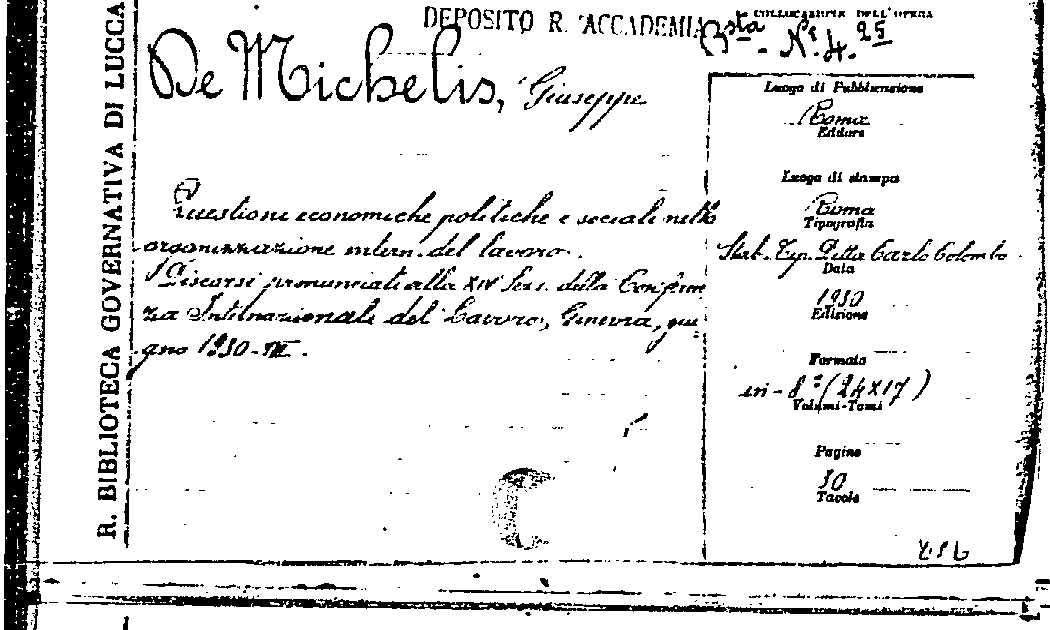 DEPOSITO R. ACCADEMIA
COLLOCAZIONE DELL'OPERA
Bsta - Nr. 4. 25
R. BIBLIOTECA GOVERNATIVA DI LUCCA
De Michelis, Giuseppe
Questioni economiche politiche e sociali nella
organizzazione intern. del lavoro.
Discorsi pronunciati alla XIV Sess. della Conferen
za Internazionale del Lavoro, Ginevra, giu
gno 1930-VIII.
Luogo di Pubblicazione
Roma
Editore
Luogo di stampa
Roma
Tipografia
Stab. Tip. Ditta Carlo Colombo
Data
1930
Edizione
Formato
in-8° (24x17)
Volumi-Tomi
Pagine
30
Tavole